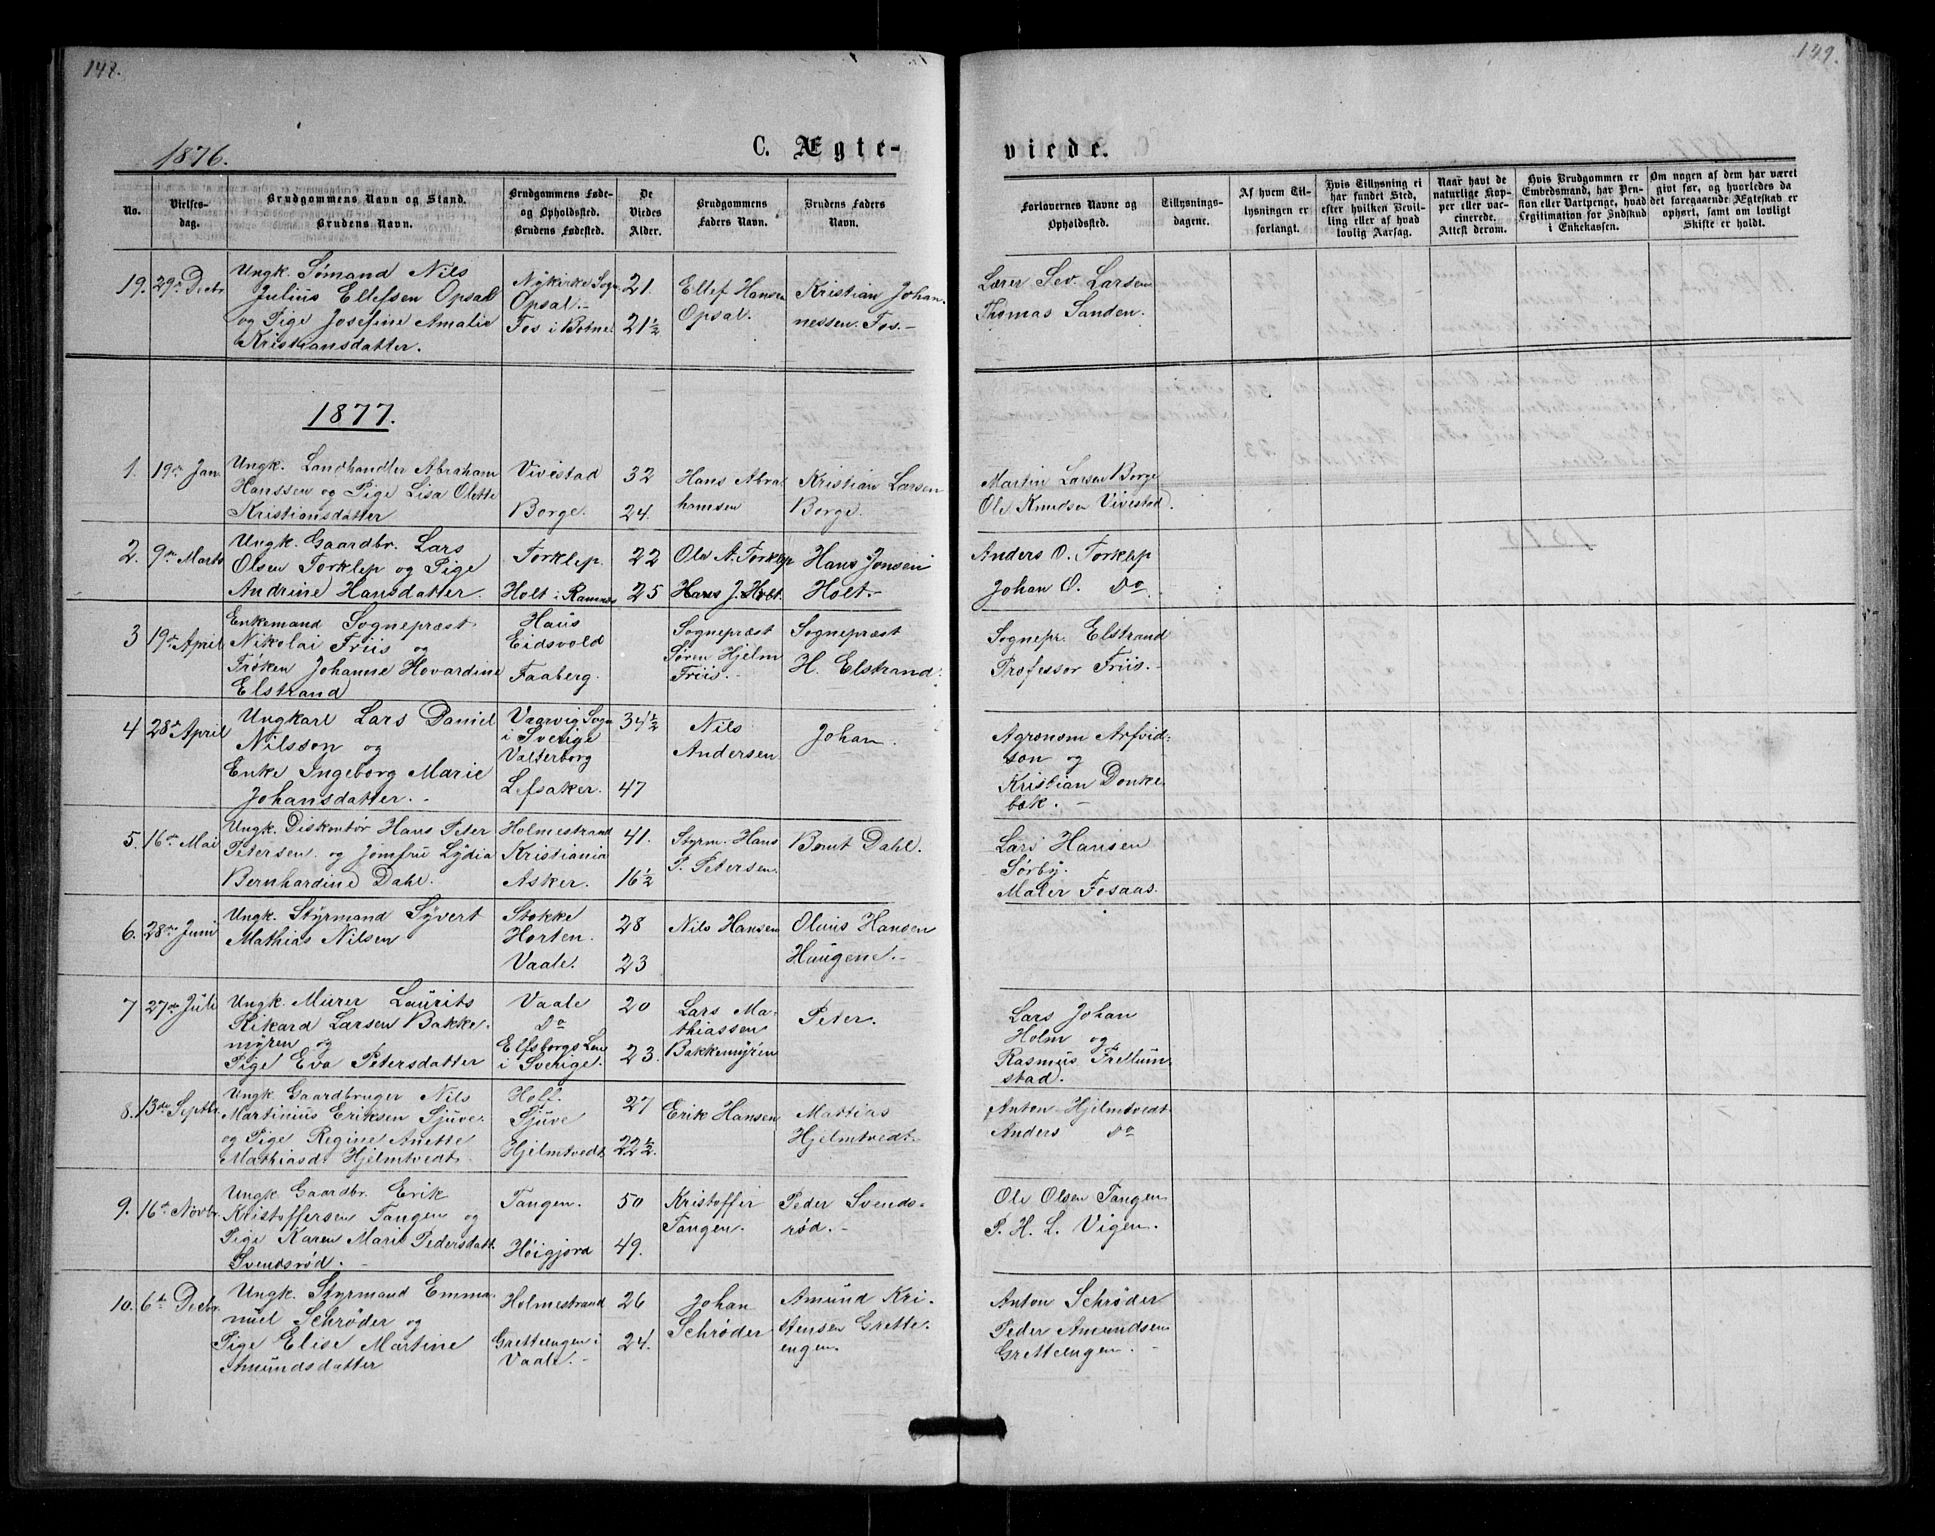 148.
149.
1876.
C. Ægte-
viede.
No.
Vielses-
dag.
Brudgommens Navn og Stand.
Brudens Navn.
Brudgommens Føde-
og Opholdssted.
Brudens Fødested.
De
Viedes
Alder.
Brudgommens
Faders Navn.
Brudens Faders
Navn.
Forlovernes Navne og
Opholdssted.
Tillysnings-
dagene.
Af hvem Til-
lysningen er
forlangt.
Hvis Tillysning ei
har fundet Sted,
efter hvilken Bevil-
ling eller af hvad
lovlig Aarsag.
Naar havt de
naturlige Kop-
per eller vac-
cinerede.
Attest derom.
Hvis Brudgommen er
Embedsmand, har Pen-
sion eller Vartpenge, hvad
Legitimation for Indskud
i Enkekassen.
Om nogen af dem har været
givt før, og hvorledes da
det foregaaende Ægteskab er
ophørt, samt om lovligt
Skifte er holdt.
19. 29de Decbr
Ungk. Sømand Nils
Julius Ellefsen Opsal
og Pige Josefine Amalie
Kristiansdatter.
Nykirke Sogn
Opsal.
Fos i Botne
21.
21½
Ellef Hansen
Opsal.
Kristian Johan-
nessen Fos.
Lærer Sev. Larsen
Thomas Sanden.
1877.
1. 19de Jan.
Ungk. Landhandler Abraham
Hanssen og Pige Lisa Olette
Kristiansdatter
Vivestad
Borge.
32
24.
Hans Abra
hamsen
Kristian Larsen
Borge.
Martin Larsen Borge
Ole Knudsen Vivestad.
2. 9de Marts
Ungk. Gaardbr. Lars
Olsen Torklep og Pige
Andrine Hansdatter.
Torklep.
Holt i Ramnæs
22
25
Ole A. Torklep
Hans J. Holt.
Hans Jonsen
Holt.
Anders O. Torklep
Johan O. Do
3 19de April
Enkemand Sognepræst
Nikolai Friis og
Frøken Johanne Hovardine
Elstrand
Haus
Eidsvold
Faaberg.
Sognepræst
Søren Hjelm
Friis.
Sognepræst
H. Elstrand.
Sognepr. Elstrand
Professor Friis.
4 28de April
Ungkarl Lars Daniel
Nilsson og
Enke Ingeborg Marie
Johansdatter.
Vaarvig Sogn
i Sverige
Valterborg
Lefsaker.
34½
47
Nils
Andersen
Johan.
Agronom Arfvid-
son og
Kristian Donke
bæk.
5. 16de Mai
Ungk. Diskontør Hans Peter
Petersen og Jomfru Lydia
Bernhardine Dahl.
Holmestrand
Kristiania
Asker.
41.
16½
Styrm. Hans
P. Petersen.
Bernt Dahl.
Lars Hansen
Sørby.
Maler Fosaas.
6. 28de Juni
Ungk. Styrmand Syvert
Mathias Nilsen
Stokke
Horten.
Vaale.
28
23
Nils Hansen
Oluus Hansen
Haugene.
7 27de Juli
Ungk. Murer Laurits
Rikard Larsen Bakke-
myren og
Pige Eva Petersdatter
Vaale
Do
Elfsborgs Len
i Sverige.
20
23.
Lars Ma-
thiassen
Bakkemyren
Peter.
Lars Johan
Holm og
Rasmus Frellum-
stad.
8. 13de Septbr.
Ungk. Gaardbruger Nils
Martinius Eriksen Sjuve
og Pige Regine Anette
Mathiasd. Hjelmtvedt
Hof.
Sjuve
Hjelmtvedt
27
22½.
Erik Hansen
Mattias
Hjelmtvedt
Anton Hjelmtvedt
Anders Do
9. 16de Novbr.
Ungk. Gaardbr. Erik
Kristoffersen Tangen og
Pige Karen Marie Pedersdatt.
Svendsrød.
Tangen.
Høigjord
50
49.
Kristoffer
Tangen.
Peder Svends-
rød.
Ole Olsen Tangen
P. H. L. Vigen.
10. 6te Decbr.
Ungk. Styrmand Emma-
nuel Schrøder og
Pige Elise Martine
Amundsdatter
Holmestrand
Gretteengen i
Vaale.
26
24.
Johan
Schrøder
Amund Kri-
stensen Grette-
engen.
Anton Schrøder
Peder Amundsen
Gretteengen.